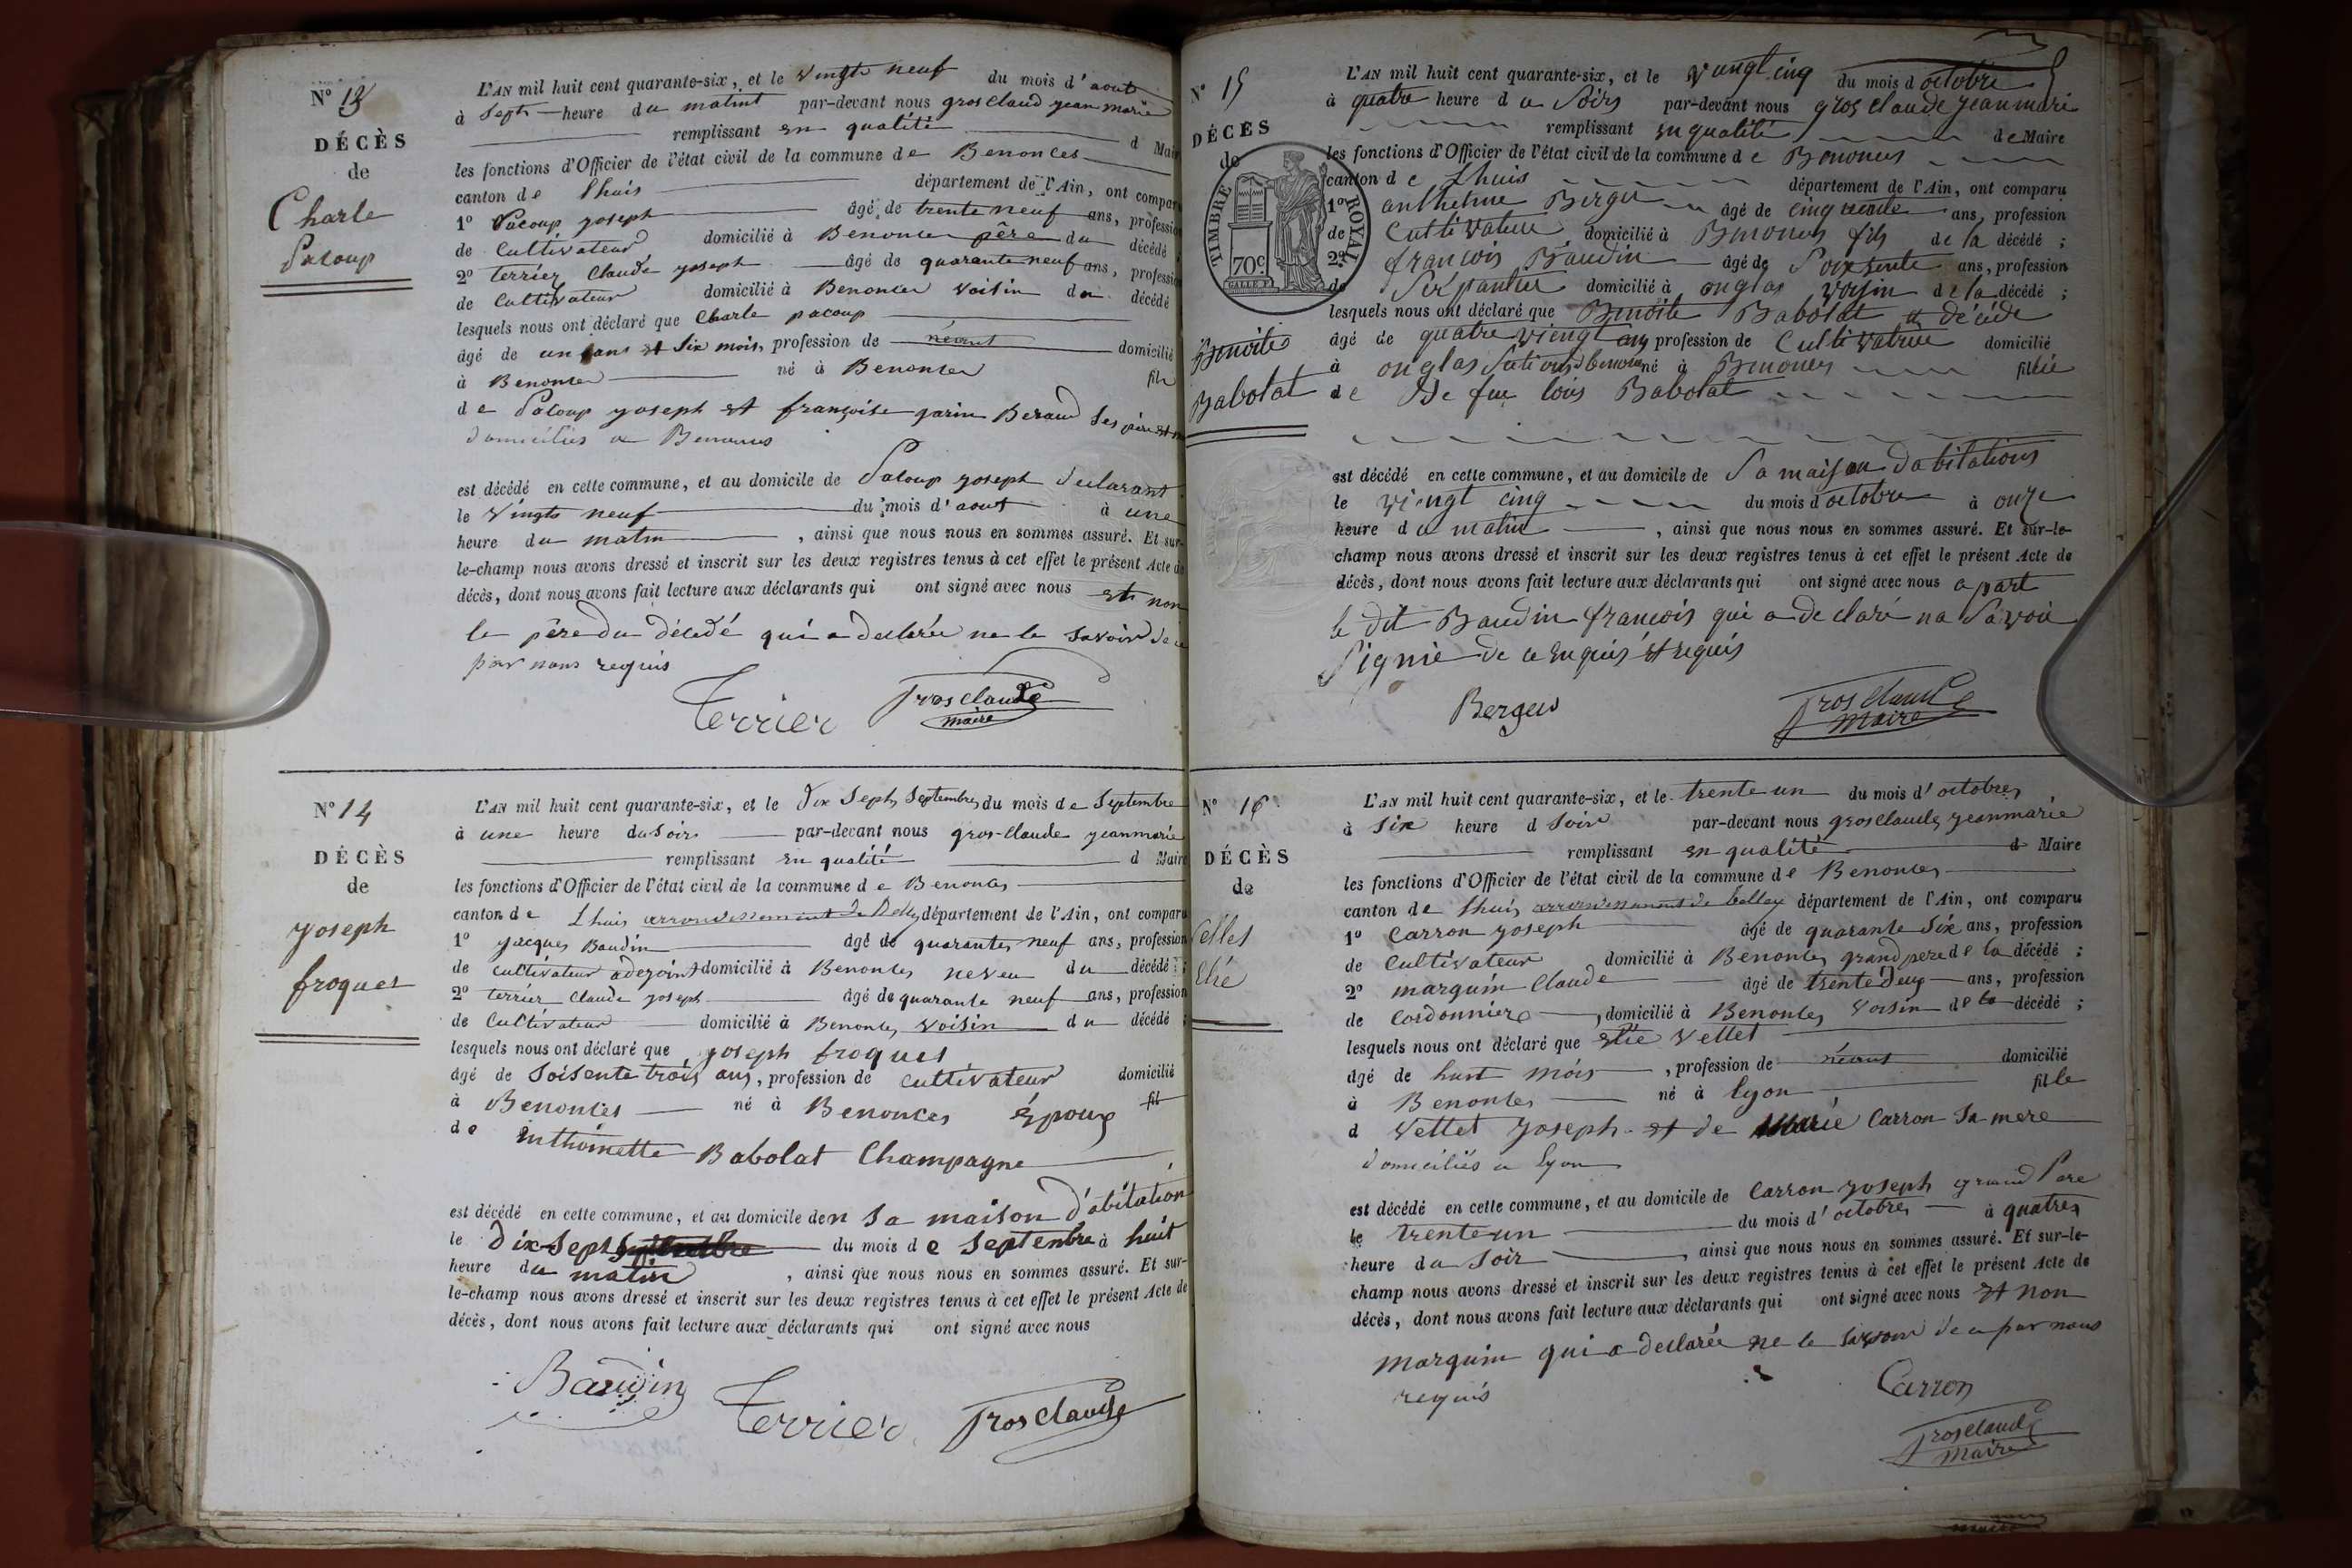 N° 13
DÉCÈS
de
Charle
Pacoup
L'AN mil huit cent quarante-six, et le vingts neuf du mois d'aout
à sept heure du matint par-devant nous gros Claud yean marie
remplissant en qualité d Maire
les fonctions d'Officier de l'état civil de la commune de Benonces
canton de Lhuis département de l'Ain, ont comparu
1° Pacoup yoseph âgé de trente neuf ans, profession
de Cultivateur domicilié à Benonces père du décédé ;
2° terrier Claude yoseph âgé de quarante neuf ans, profession
de Cultivateur domicilié à Benonces voisin du décédé
lesquels nous ont déclaré que Charle pacoup
âgé de un ans et six mois, profession de néant domicilié
à Benonces né à Benonces fils
de Pacoup yoseph et françoise garin Beraud ses père et
domiciliés a Benonces
est décédé en cette commune, et au domicile de Pacoup yoseph declarant
le vingts neuf du mois d'aout à une
heure du matin , ainsi que nous nous en sommes assuré. Et sur-
le-champ nous avons dressé et inscrit sur les deux registres tenus à cet effet le présent Acte de
décès, dont nous avons fait lecture aux déclarants qui ont signé avec nous et non
le père du décédé qui a declarée ne le savoir de ce
par nous requis
Terrier Grosclaude
maire
N° 14
DÉCÈS
de
yoseph
froques
L'AN mil huit cent quarante-six, et le Dix Sept Septembre du mois de Septembre
à une heure du soir par-devant nous gros-Claude yeanmarie
remplissant en qualité d Maire
les fonctions d'Officier de l'état civil de la commune de Benonces
canton de Lhuis arrondissement de Belley département de l'Ain, ont comparu
1° yacques Baudin âgé de quarante neuf ans, profession
de cultivateur adejoint domicilié à Benonces neveu du décédé ;
2° terrier Claude yoseph âgé de quarante neuf ans, profession
de Cultivateur domicilié à Benonces voisin du décédé ;
lesquels nous ont déclaré que yoseph froques
âgé de soisente trois ans, profession de cultivateur domicilié
à Benonces né à Benonces Époux fil
de Enthoinette Babolat Champagne
est décédé en cette commune, et au domicile den sa maison d'abitation
le dix-sept du mois de Septenbre à huit
heure du matin , ainsi que nous nous en sommes assuré. Et sur-
le-champ nous avons dressé et inscrit sur les deux registres tenus à cet effet le présent Acte de
décès, dont nous avons fait lecture aux déclarants qui ont signé avec nous
Baudin Terrier Grosclaude
N° 15
DÉCÈS
de
TIMBRE ROYAL
70c.
Benoite
Babolat
L'AN mil huit cent quarante-six, et le vungt cinq du mois d octobre
à quatre heure du Soirs par-devant nous gros Claude yeanmari
remplissant en qualité de Maire
les fonctions d'Officier de l'état civil de la commune de Benonces
canton de Lhuis département de l'Ain, ont comparu
1° anthelme Berger âgé de cinquante ans, profession
de Cultivateur domicilié à Benonces fils de la décédé ;
2° francois Baudin âgé de Soixsente ans, profession
de Serpantier domicilié à onglas voysin de la décédé ;
lesquels nous ont déclaré que Benoite Babolat et décéde
âgé de quatre viengt ans profession de Cultivatrice domicilié
à onglas né à Benonces fillie
de De fue lois Babolat
est décédé en cette commune, et au domicile de Sa maison dabitations
le viengt cinq du mois d octobre à onze
heure du matin , ainsi que nous nous en sommes assuré. Et sur-le-
champ nous avons dressé et inscrit sur les deux registres tenus à cet effet le présent Acte de
décès, dont nous avons fait lecture aux déclarants qui ont signé avec nous a part
le dit Baudin francois qui a de claré na Savoir
Signié de ce enquis et requis
Berger Grosclaude
Maire
N° 16
DÉCÈS
de
Vellet
Elie
L'AN mil huit cent quarante-six, et le trente un du mois d'octobre
à six heure d soir par-devant nous grosclaude yeanmarie
remplissant en qualité d Maire
les fonctions d'Officier de l'état civil de la commune de Benonces
canton de Lhuis arrondissement de belley département de l'Ain, ont comparu
1° Carron yoseph âgé de quarante six ans, profession
de Cultivateur domicilié à Benonces grand pere de la décédé ;
2° marguin Claude âgé de trente deux ans, profession
de Cordonnier , domicilié à Benonces voisin de la décédé ;
lesquels nous ont déclaré que Elie Vellet
âgé de huit mois , profession de néant domicilié
à Benonces né à lyon fille
d Vellet yoseph et de Marie Carron sa mere
domiciliés a lyon
est décédé en cette commune, et au domicile de Carron yoseph grand Pere
le trente un du mois d'octobre à quatres
heure du soir , ainsi que nous nous en sommes assuré. Et sur-le-
champ nous avons dressé et inscrit sur les deux registres tenus à cet effet le présent Acte de
décès, dont nous avons fait lecture aux déclarants qui ont signé avec nous et non
marguin qui a declarée ne le savoir de ce par nous
requis
Carron
Grosclaude
maire